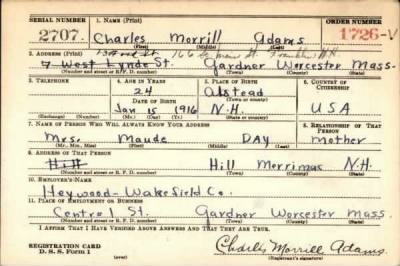 SERIAL NUMBER 1. NAME (Print) ORDER NUMBER
2707. Charles Morrill Adams 1726-V
(First) (Middle) (Last)
2. ADDRESS (Print)
7 West Lynde St. Gardner Worcester Mass.
(Number and street or R. F. D. number) (Town) (County) (State)
3. TELEPHONE 4. AGE IN YEARS 5. PLACE OF BIRTH 6. COUNTRY OF CITIZENSHIP
24 Alstead
(Town or county)
DATE OF BIRTH
Jan 15 1916 N.H. USA
(Exchange) (Number) (Mo.) (Day) (Yr.) (State or country)
7. NAME OF PERSON WHO WILL ALWAYS KNOW YOUR ADDRESS 8. RELATIONSHIP OF THAT PERSON
Mrs. Maude DAY mother
(Mr., Mrs., Miss) (First) (Middle) (Last)
9. ADDRESS OF THAT PERSON
Hill Hill Merrimac N.H.
(Number and street or R. F. D. number) (Town) (County) (State)
10. EMPLOYER'S NAME
Heywood-Wakefield Co.
11. PLACE OF EMPLOYMENT OR BUSINESS
Central St. Gardner Worcester Mass.
(Number and street or R. F. D. number) (Town) (County) (State)
I AFFIRM THAT I HAVE VERIFIED ABOVE ANSWERS AND THAT THEY ARE TRUE.
REGISTRATION CARD
D. S. S. Form 1 (over) Charles Morrill Adams.
(Registrant's signature)